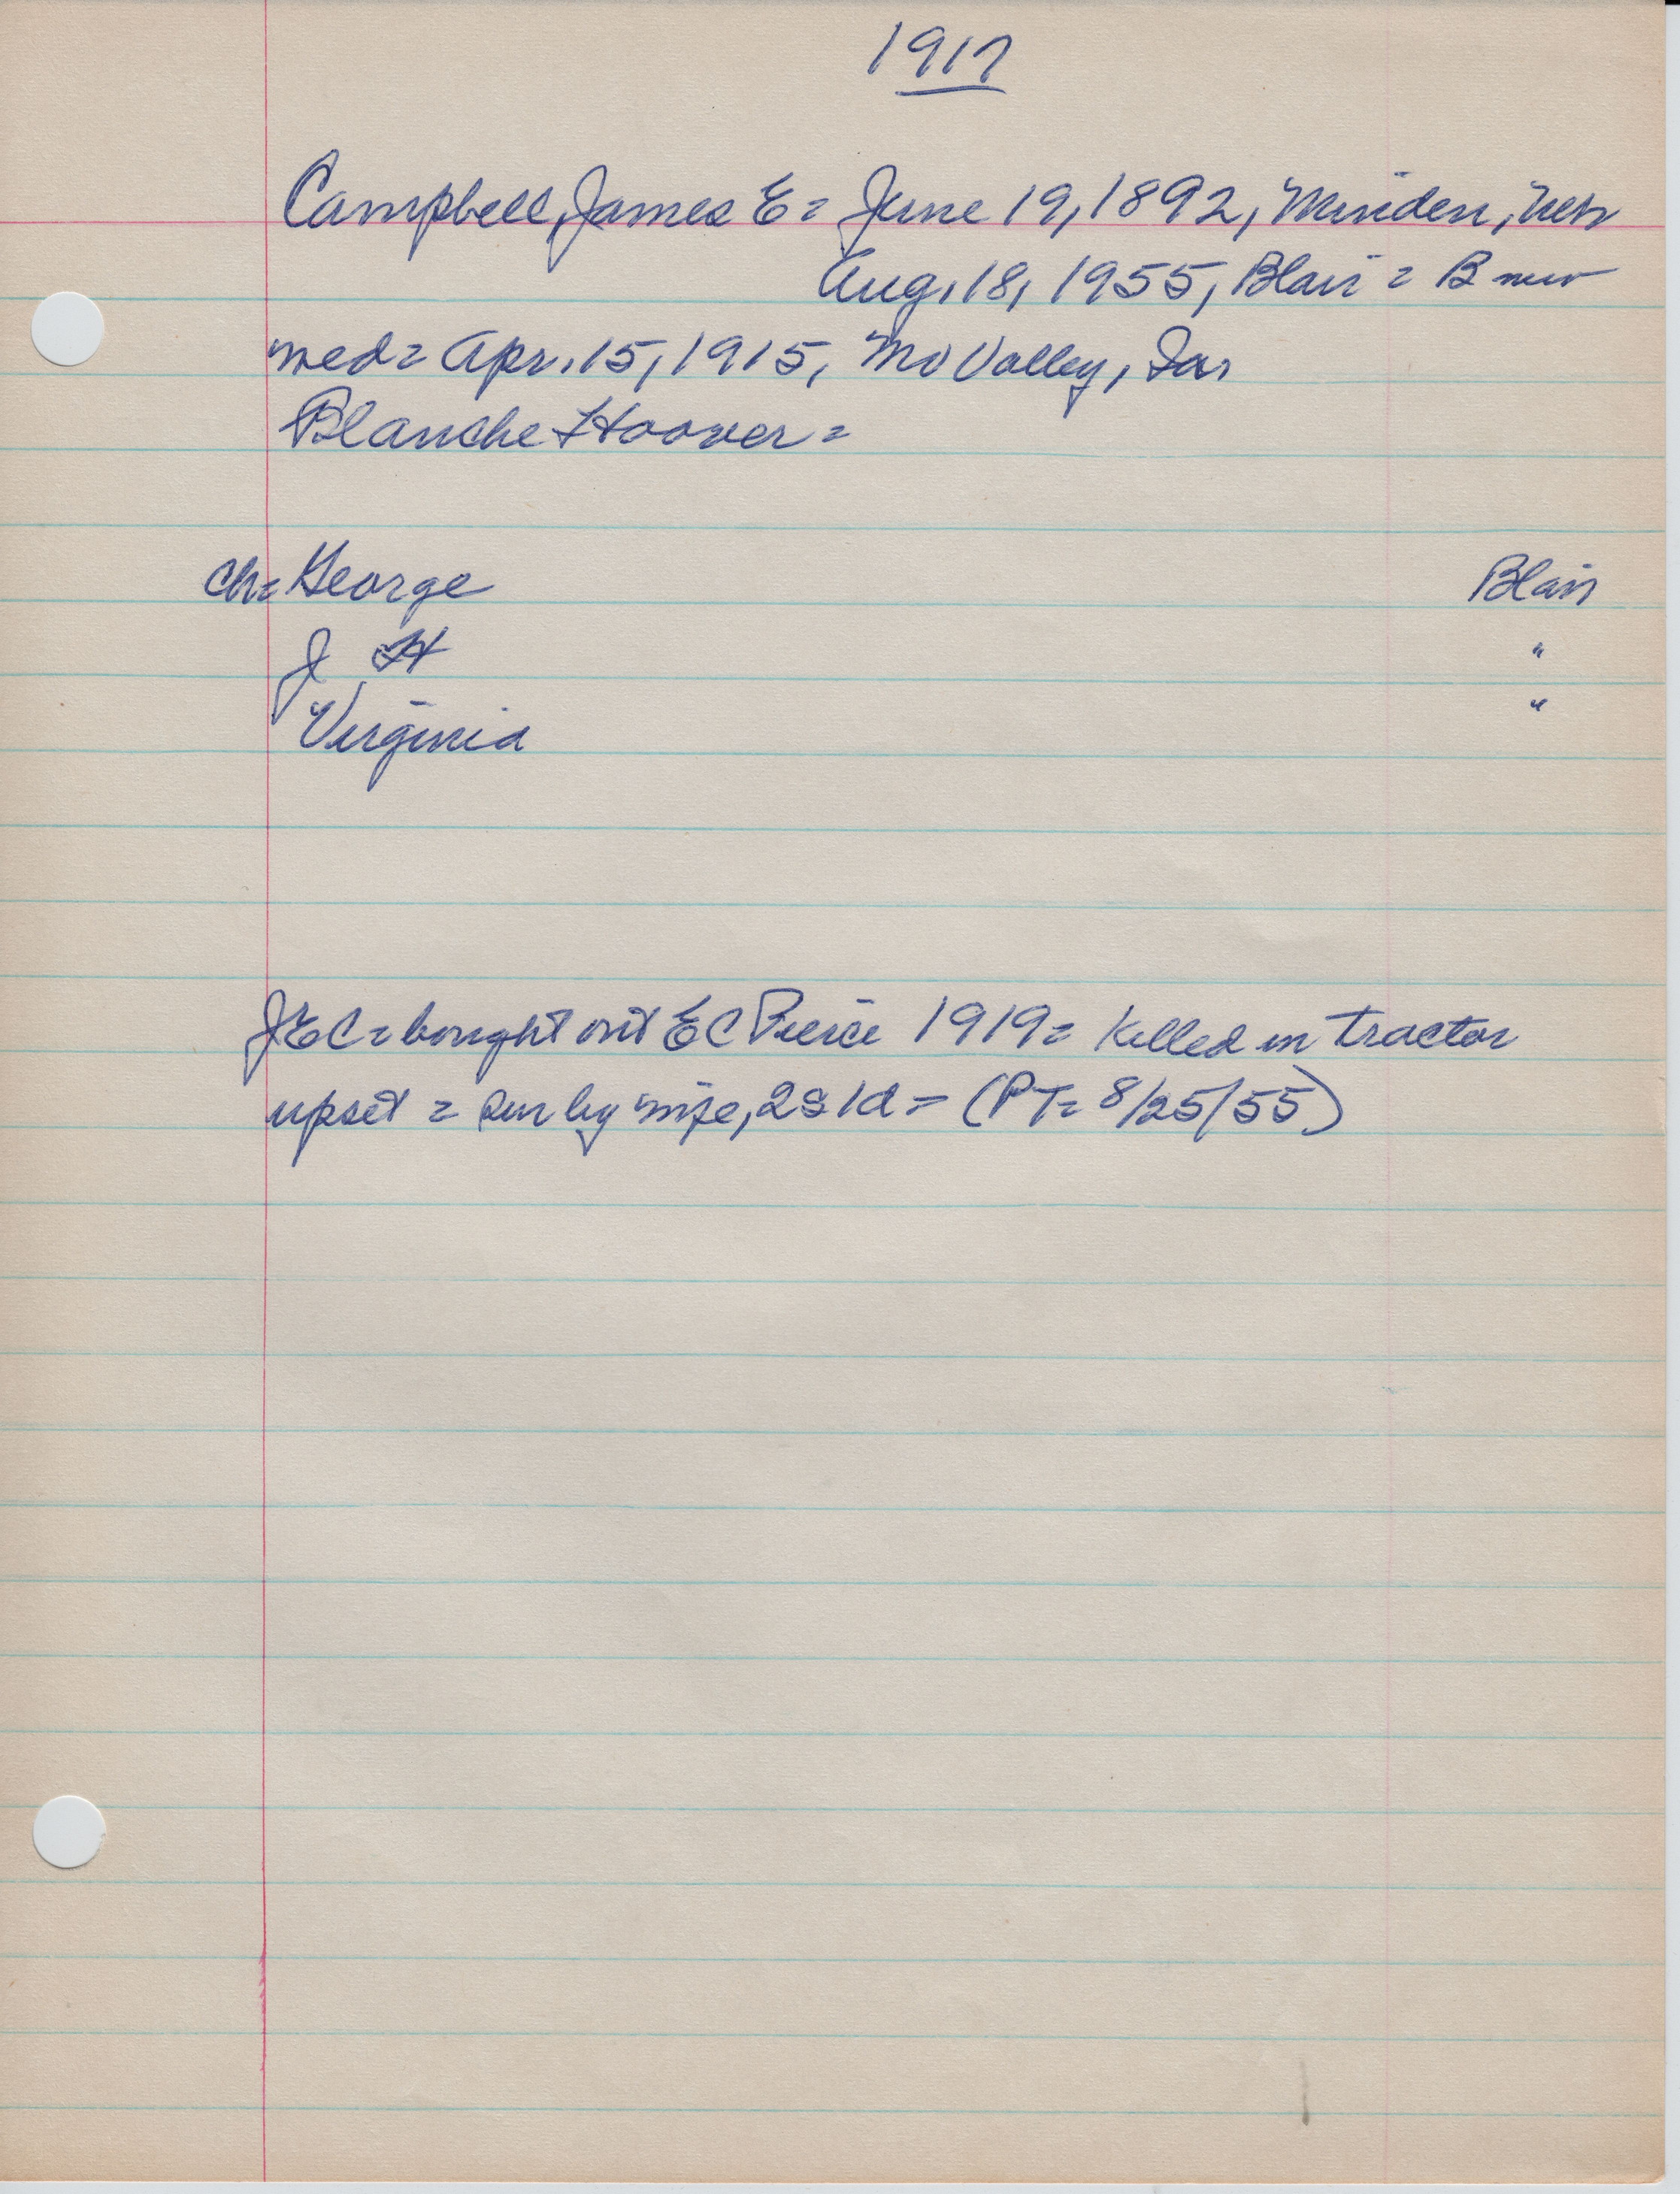 1917
Campbell, James E = June 19, 1892, Minden, Neb
Aug. 18, 1955, Blair = B
med = Apr. 15, 1915, Mo Valley, Ia.
Blanche Hoover =
ch = George Blair
J H "
Virginia "
JEC = bought out E C Pierce 1919 = killed in tractor
upset = sur by wife, 2s 1d = (PT = 8/25/55)